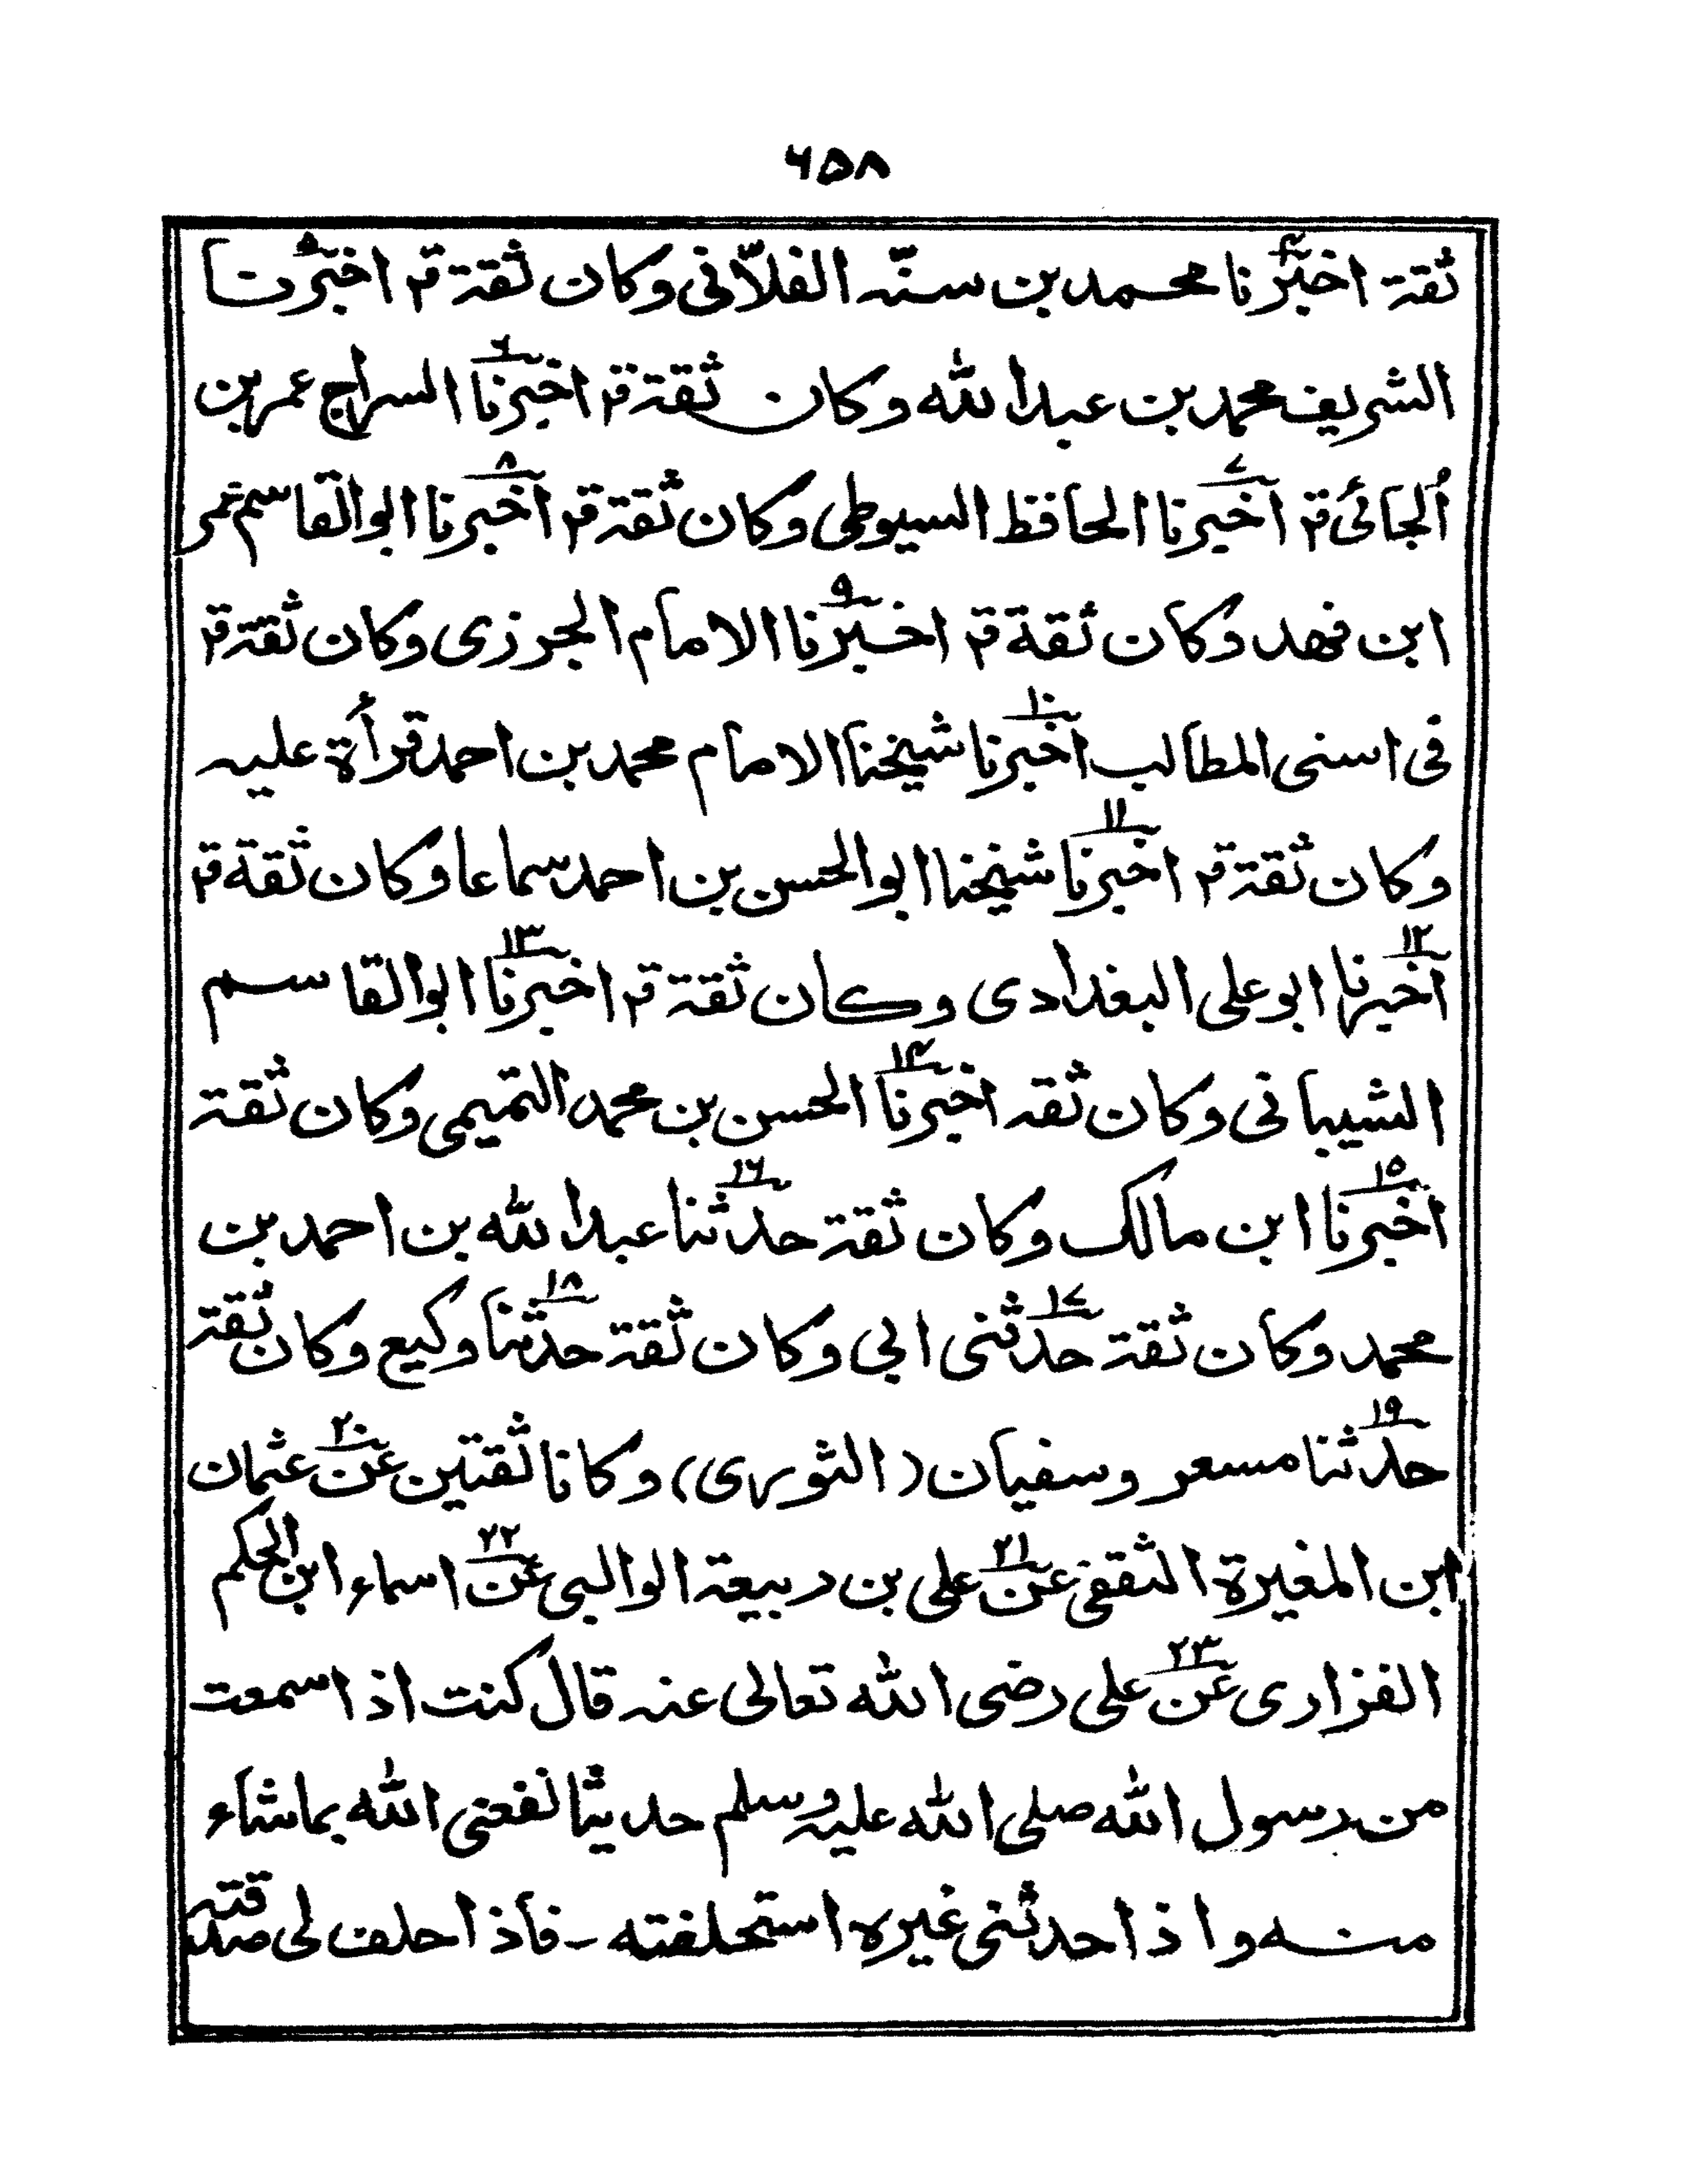 ۶۵۸
ثقة اخبرنا۴ محمد بن سنّه الفلاّنی وکان ثقة قم اخبرنا۵
الشریف محمد بن عبدالله وکان ثقة قم اخبرنا۶ السراج عمر بن
ألجائی قم اخبرنا۷ الحافظ السیوطی وکان ثقة قم اخبرنا۸ ابوالقاسم عمر
ابن فهد وکان ثقة قم اخبرنا۹ الامام الجرزی وکان ثقة قم
فی اسنی المطالب اخبرنا۱۰ شیخنا الامام محمد بن احمد قرأة علیه
وکان ثقة قم اخبرنا۱۱ شیخنا ابوالحسن بن احمد سماعا وکان ثقة قم
اخبرنا۱۲ ابوعلی البغدادی وکان ثقة قم اخبرنا۱۳ ابوالقاسم
الشیبانی وکان ثقه اخبرنا۱۴ الحسن بن محمد التمیمی وکان ثقة
اخبرنا۱۵ ابن مالک وکان ثقة حدثنا۱۶ عبدالله بن احمد بن
محمد وکان ثقة حدثنی۱۷ ابی وکان ثقة حدثنا۱۸ وکیع وکان ثقة
حدثنا۱۹ مسعر وسفیان (الثوری) وکانا ثقتین عن۲۰ عثمان
ابن المغیرة الثقفی عن۲۱ علی بن ربیعة الوالبی عن۲۲ اسماء ابن الحکم
الفزاری عن۲۳ علی رضی الله تعالی عنه قال کنت اذا سمعت
من رسول الله صلی الله علیه وسلم حدیثا نفعنی الله بماشاء
منه واذا حدثنی غیره استحلفته ـ فأذا حلف لی صدقته